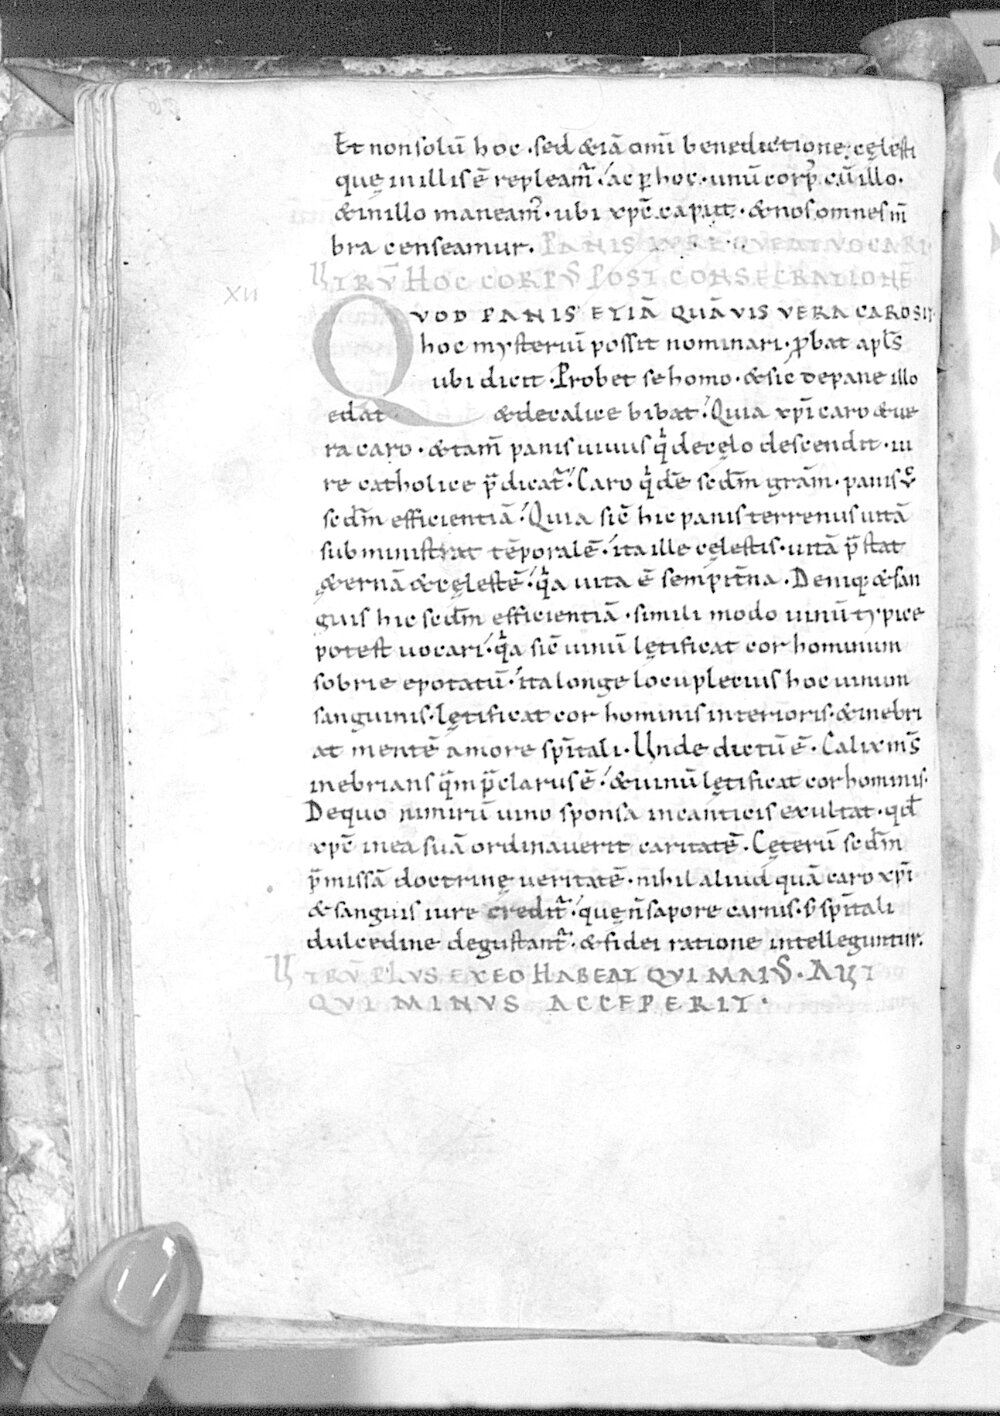 Et non solū hoc · sed &iā omī benedictione cęlesti
que in illis ē repleam̃ · ac ꝑ hoc · unū corp̃ cū illo ·
& in illo maneam̃ · ubi xp̄c caput · & nos omnes m̄
bra censeamur · PANIS IVRE QVEAT VOCARI
VTRV̄ HOC CORPV̄S POST CONSECRATIONĒ
XII
QVOD PANIS ETIĀ QUĀVIS VERA CARO SIT
hoc mysteriū possit nominari · ꝓbat apl̄s
ubi dicit · Probet se homo · & sic de pane illo
edat & de calice bibat · Quia xp̄i caro & ue
ra caro · & tam̄ panis uiuus q̄ de cęlo descendit · iu
re catholice p̄dicat̃ · Caro q̄dē scdm̄ grām · panis ū
scdm̄ efficientiā · Quia sic̄ hic panis terrenus uitā
subministrat tēporalē · ita ille cęlestis · uitā p̄stat
ęternā & cęlestē · q̄a uita ē sempit̄na · Deniq; & san
guis hic scdm̄ efficientiā · simili modo uinū typice
potest uocari · q̄a sic̄ uinū lętificat cor hominum
sobrie epotatū · ita longe locupletius hoc uinum
sanguinis · lętificat cor hominis interioris · & inebri
at mentē amore spīt̄ali · Unde dictū ē · Calix m̄s
inebrians q̄m p̄clarus ē · & uinū lętificat cor hominis ·
De quo nimirū uino sponsa in canticis exultat · qđ
xp̄c in ea suā ordinauerit caritatē · Cęterū scdm̄
p̄missā doctrinę ueritatē · nihil aliud quā caro xp̄i
& sanguis iure credit̃ · quę n̄ sapore carnis · s̄ spīt̄ali
dulcedine degustant̃ · & fidei ratione intelleguntur.
VTRV̄ PLVS EX EO HABEAT QVI MAIV̄S · AUT
QVI MINVS ACCEPERIT ·